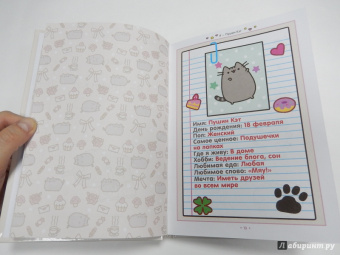 Имя: Пушин Кэт
День рождения: 18 февраля
Пол: Женский
Самое ценное: Подушечки
на лапках
Где я живу: В доме
Хобби: Ведение блога, сон
Любимая еда: Любая
Любимое слово: «Мяу!»
Мечта: Иметь друзей
во всем мире
Лабиринт.ру